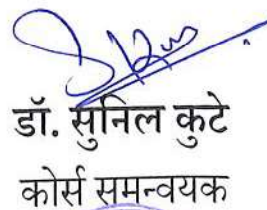 डॉ. सुनिल कुटे
कोर्स समन्वयक